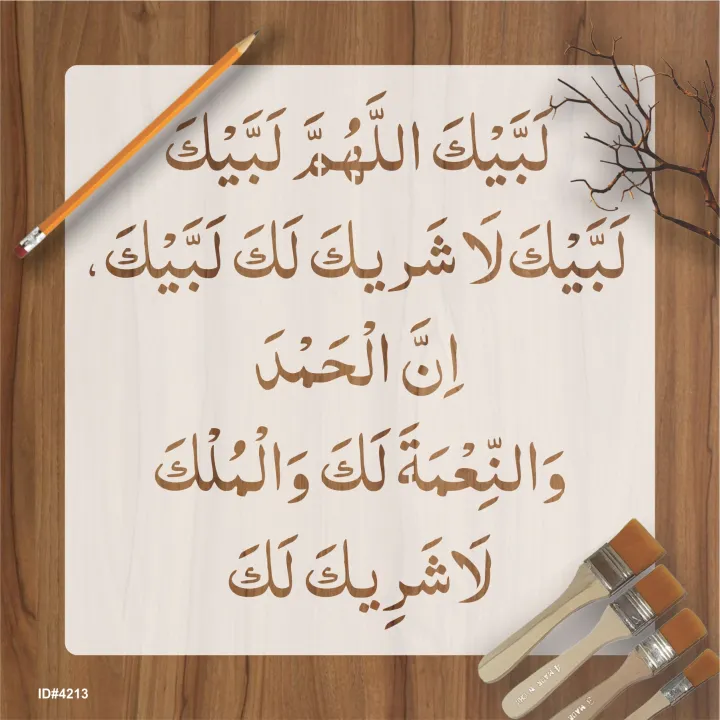 لَبَّيْكَ اللَّهُمَّ لَبَّيْكَ
لَبَّيْكَ لَا شَريكَ لَكَ لَبَّيْكَ،
اِنَّ الْحَمْدَ
وَالنِّعْمَةَ لَكَ وَالْمُلْكَ
لَاشَرِيكَ لَكَ
ID#4213